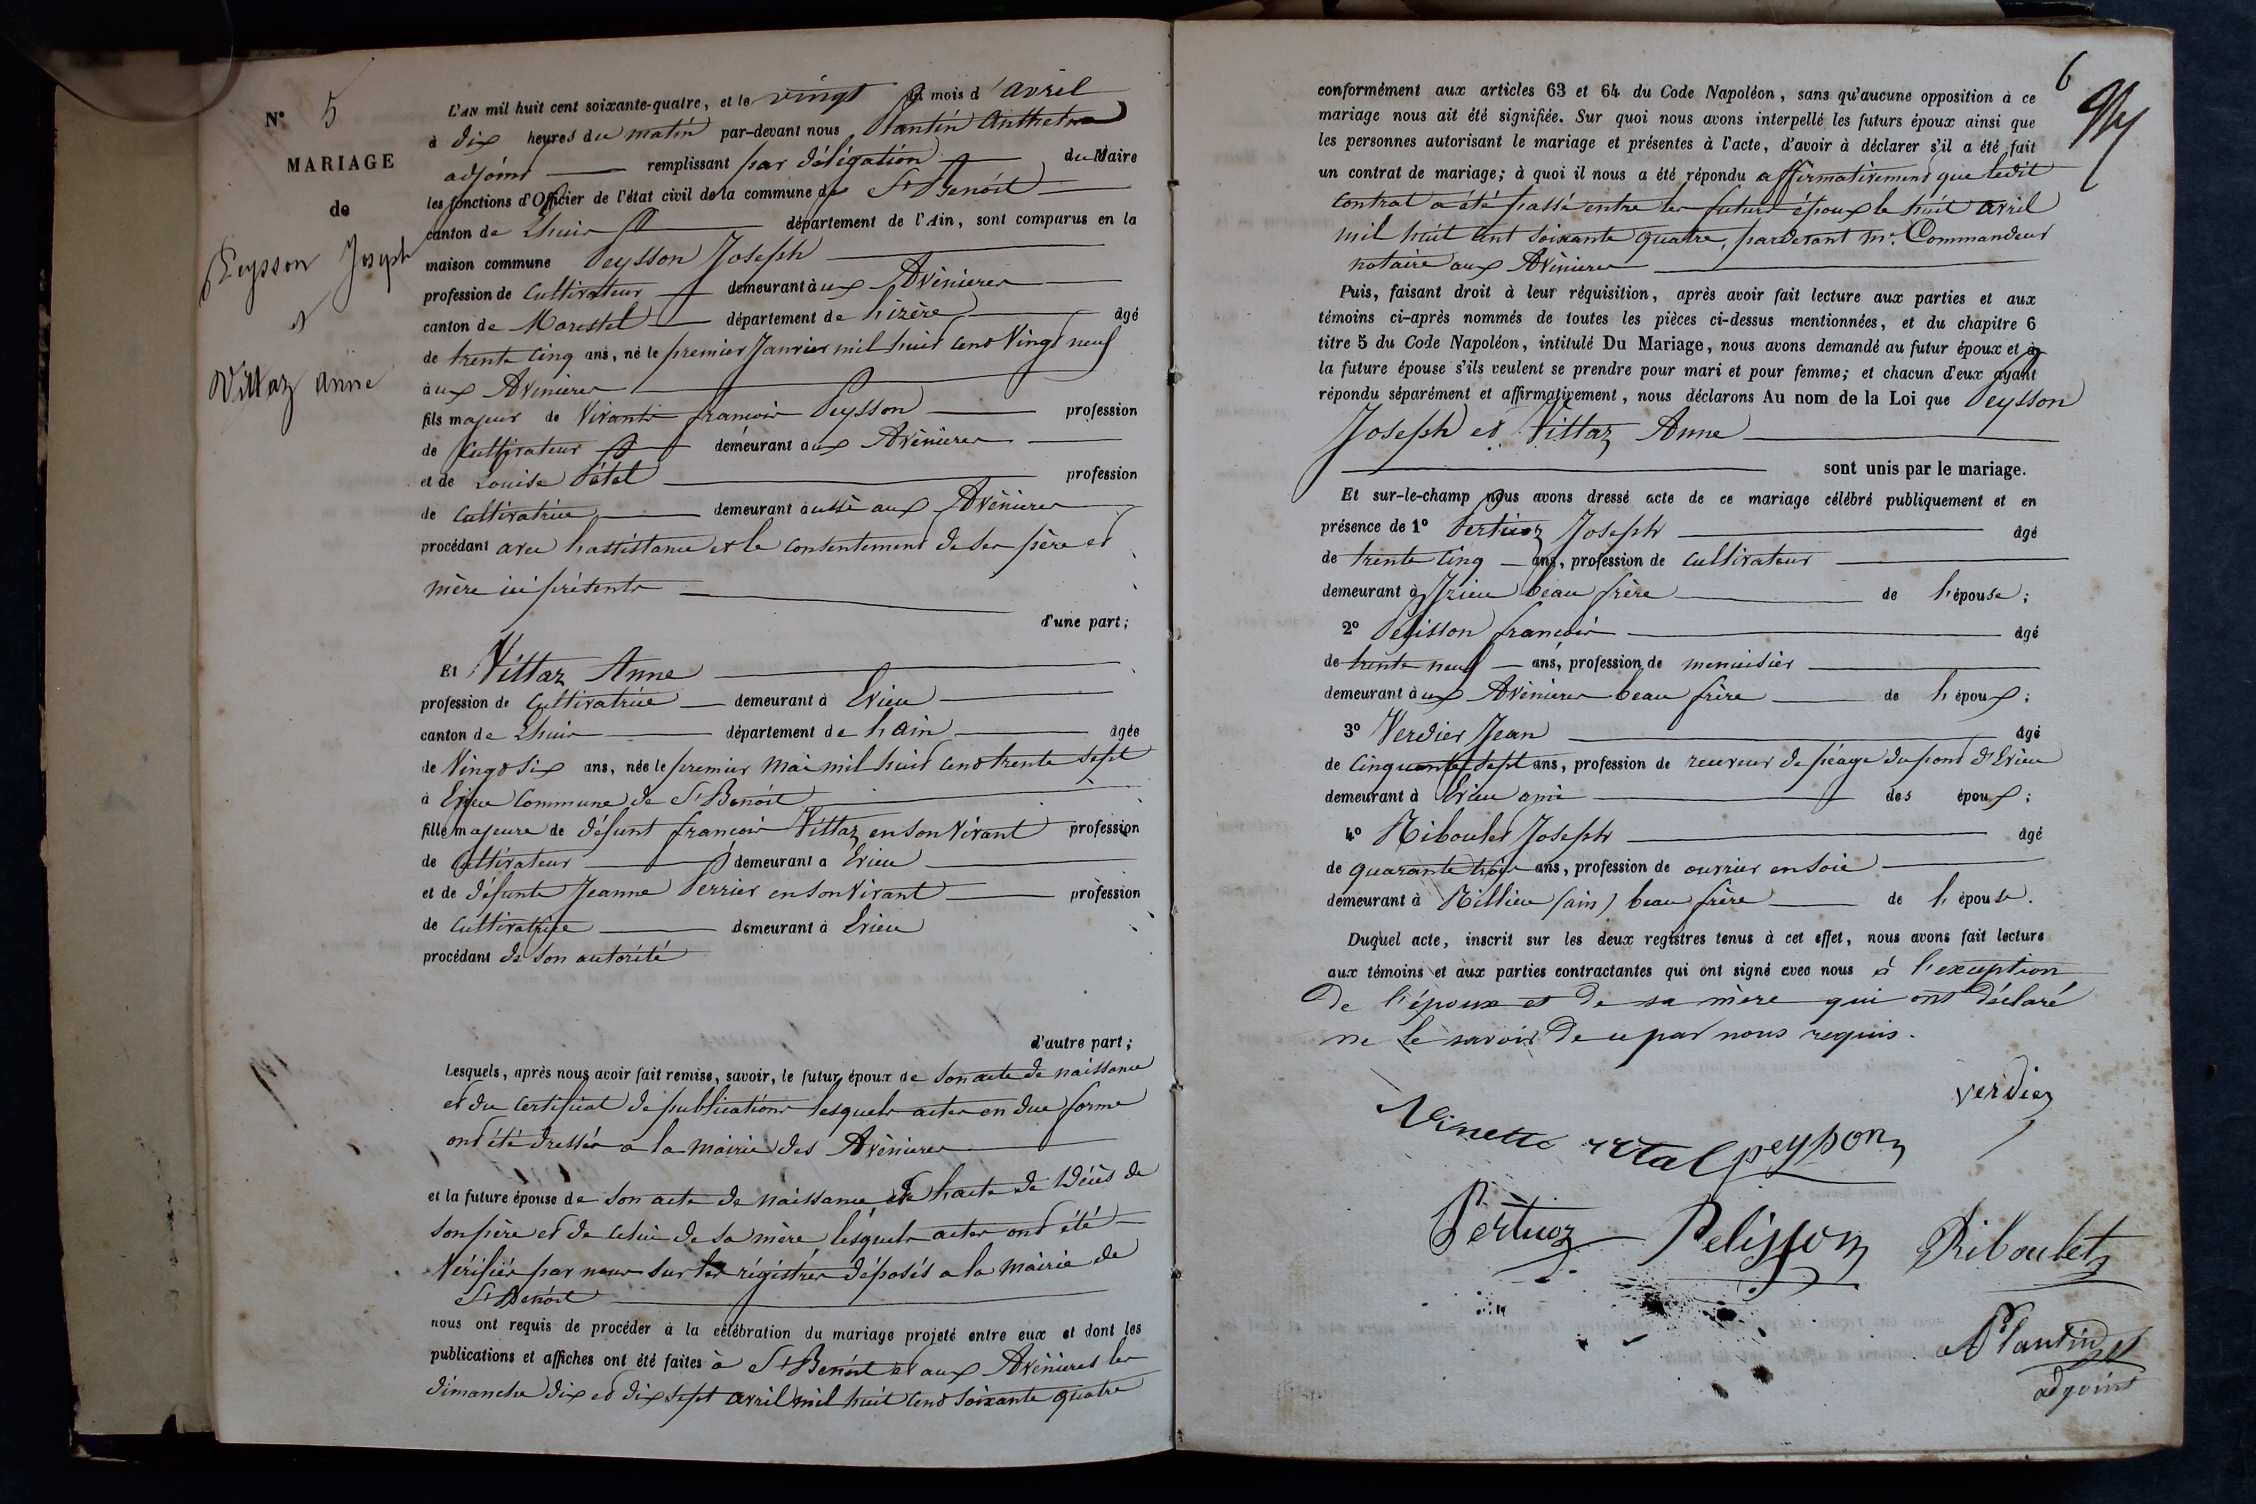 N° 5
MARIAGE
de
Peysson Joseph
et
Vittaz Anne
L'AN mil huit cent soixante-quatre, et le vingt du mois d'avril
à dix heures du matin par-devant nous Plantin Anthelme
adjoint remplissant par délégation du Maire
les fonctions d'Officier de l'état civil de la commune de St Benoît
canton de Lhuis département de l'Ain, sont comparus en la
maison commune Peysson Joseph
profession de Cultivateur demeurant à ux Avenieres
canton de Morestel département de l'izère âgé
de trente cinq ans, né le premier Janvier mil huit cent Vingt neuf
à ux Avenieres
fils majeur de Vivants françois Peysson profession
de Cultivateur demeurant à ux Avenieres
et de Louise Pétel profession
de Cultivatrice demeurant à ussi aux Avenieres
procédant avec l'assistance et le consentement de ses père et
mère ici présents
d'une part;
Et Vittaz Anne
profession de Cultivatrice demeurant à Evieu
canton de Lhuis département de l'ain âgée
de Vingt six ans, née le premier Mai mil huit cent trente sept
à Evieu Commune de St Benoît
fille majeure de défunt françois Vittaz en son vivant profession
de Cultivateur demeurant à Evieu
et de défunte Jeanne Perrier en son vivant profession
de Cultivatrice demeurant à Evieu
procédant de son autorité
d'autre part;
Lesquels, après nous avoir fait remise, savoir, le futur époux de son acte de naissance
et du certificat de publications lesquels actes en due forme
ont été dressés à la mairie des Avenieres
et la future épouse de son acte de naissance de l'acte de décès de
son père et de celui de sa mère lesquels actes ont été
vérifiés par nous sur les régistres déposés a la mairie de
St Benoît
nous ont requis de procéder à la célébration du mariage projeté entre eux et dont les
publications et affiches ont été faites à St Benoît et aux Avenieres les
dimanche dix et dix sept avril mil huit cent soixante quatre
6
conformément aux articles 63 et 64 du Code Napoléon, sans qu'aucune opposition à ce
mariage nous ait été signifiée. Sur quoi nous avons interpellé les futurs époux ainsi que
les personnes autorisant le mariage et présentes à l'acte, d'avoir à déclarer s'il a été fait
un contrat de mariage; à quoi il nous a été répondu affirmativement que ledit
contrat a été passé entre les futurs époux le huit avril
mil huit cent soixante quatre, pardevant Mr. Commandeur
notaire aux Avenieres
Puis, faisant droit à leur réquisition, après avoir fait lecture aux parties et aux
témoins ci-après nommés de toutes les pièces ci-dessus mentionnées, et du chapitre 6
titre 5 du Code Napoléon, intitulé Du Mariage, nous avons demandé au futur époux et à
la future épouse s'ils veulent se prendre pour mari et pour femme; et chacun d'eux ayant
répondu séparément et affirmativement, nous déclarons Au nom de la Loi que Peysson
Joseph et Vittaz Anne
sont unis par le mariage.
Et sur-le-champ nous avons dressé acte de ce mariage célébré publiquement et en
présence de 1° Pertuoz Joseph âgé
de trente cinq ans, profession de cultivateur
demeurant à beau frère de l'épouse;
2° Pelisson françois âgé
de trente neuf ans, profession de menuisier
demeurant à ux Avenieres beau frère de l'époux;
3° Verdier Jean âgé
de Cinquante sept ans, profession de receveur de péage du pont d'Evieu
demeurant à Evieu ami des époux;
4° Riboulet Joseph âgé
de quarante trois ans, profession de ouvrier en soie
demeurant à Rillieu (ain) beau frère de l'épouse.
Duquel acte, inscrit sur les deux registres tenus à cet effet, nous avons fait lecture
aux témoins et aux parties contractantes qui ont signé avec nous à l'exception
de l'époux et de sa mère qui ont déclaré
ne le savoir de ce par nous requis.
verdier
peysson
Pertuoz Pelisson Riboulet
Plantin
adjoint